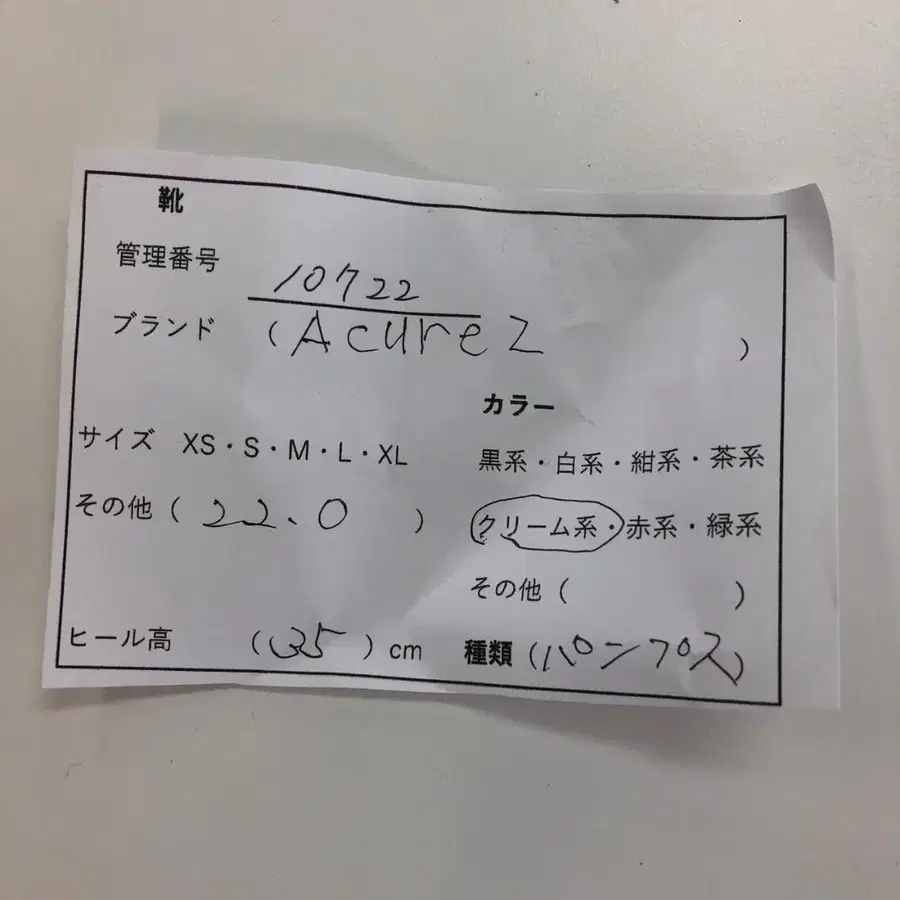 靴
管理番号 10722
ブランド (Acurez)
カラー
サイズ XS・S・M・L・XL
黒系・白系・紺系・茶系
その他 (22.0)
クリーム系・赤系・緑系
その他 ( )
ヒール高 (35) cm
種類 (パンプス)